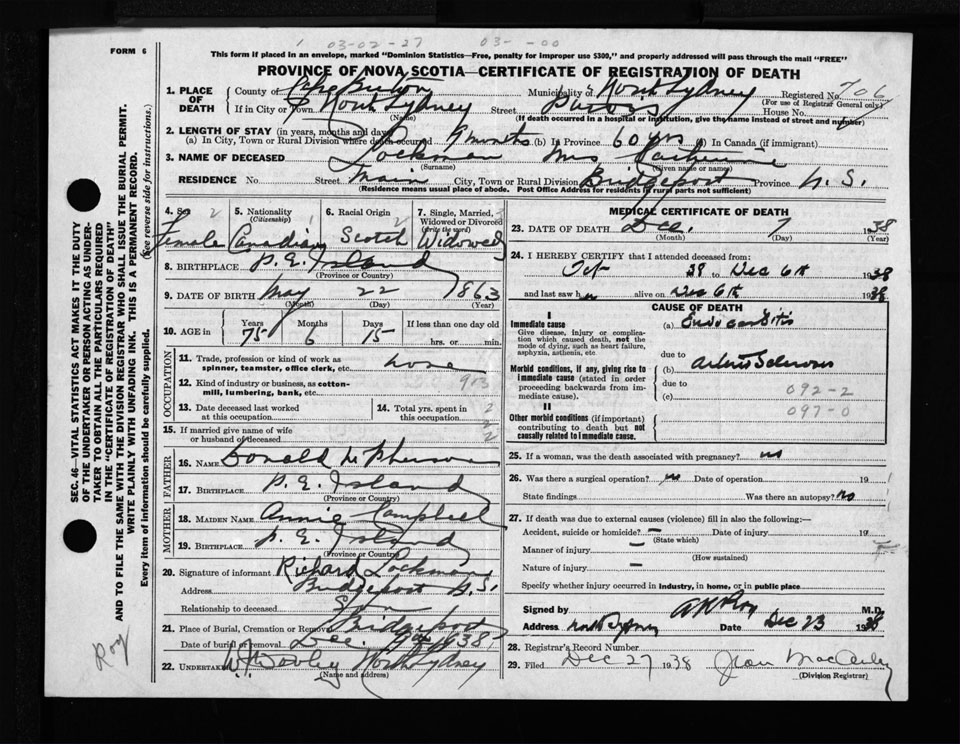 03-02-27 03- -00
FORM 6
This form if placed in an envelope, marked "Dominion Statistics—Free, penalty for improper use $300," and properly addressed will pass through the mail "FREE"
PROVINCE OF NOVA SCOTIA—CERTIFICATE OF REGISTRATION OF DEATH
1. PLACE OF DEATH County of Cape Breton Municipality of North Sydney Registered No. 706
(For use of Registrar General only)
If in City or Town North Sydney Street Purves House No.
(Name) (If death occurred in a hospital or institution, give the name instead of street and number)
2. LENGTH OF STAY (in years, months and days)
(a) In City, Town or Rural Division where death occurred 9 months (b) In Province 60 yrs (c) In Canada (if immigrant)
3. NAME OF DECEASED Lockman Mrs Catherine
(Surname) (Given name or names)
RESIDENCE No. Street Main City, Town or Rural Division Bridgeport Province N. S.
(Residence means usual place of abode. Post Office Address for residents in rural parts not sufficient)
4. Sex 2 Female
5. Nationality (Citizenship) Canadian
6. Racial Origin 2 Scotch
7. Single, Married, Widowed or Divorced (write the word) Widowed
8. BIRTHPLACE P. E. Island
(Province or Country)
9. DATE OF BIRTH May 22 1863
(Month) (Day) (Year)
10. AGE in Years Months Days If less than one day old
75 6 15 hrs. or min.
OCCUPATION
11. Trade, profession or kind of work as spinner, teamster, office clerk, etc. none
12. Kind of industry or business, as cotton-mill, lumbering, bank, etc. 913
13. Date deceased last worked at this occupation
14. Total yrs. spent in this occupation
15. If married give name of wife or husband of deceased
FATHER
16. Name Donald McPherson
17. Birthplace P. E. Island
(Province or Country)
MOTHER
18. Maiden Name Annie Campbell
19. Birthplace P. E. Island
(Province or Country)
20. Signature of informant Richard Lockman
Address Bridgeport N. S.
Relationship to deceased Son
21. Place of Burial, Cremation or Removal Bridgeport
Date of burial or removal Dec 1938
22. Undertaker North Sydney
(Name and address)
MEDICAL CERTIFICATE OF DEATH
23. DATE OF DEATH Dec. 7 1938
(Month) (Day) (Year)
24. I HEREBY CERTIFY that I attended deceased from:
Oct 38 to Dec 6th 1938
and last saw her alive on Dec 6th 1938
CAUSE OF DEATH
I
Immediate cause
Give disease, injury or complication which caused death, not the mode of dying, such as heart failure, asphyxia, asthenia, etc
(a) Endocarditis
due to
Morbid conditions, if any, giving rise to immediate cause (stated in order proceeding backwards from immediate cause).
(b) Arterio Sclerosis
due to
(c) 092-2
097-0
II
Other morbid conditions (if important) contributing to death but not causally related to immediate cause.
25. If a woman, was the death associated with pregnancy? no
26. Was there a surgical operation? no Date of operation 19
State findings Was there an autopsy? no
27. If death was due to external causes (violence) fill in also the following:—
Accident, suicide or homicide? — Date of injury 19
(State which)
Manner of injury —
(How sustained)
Nature of injury —
Specify whether injury occurred in industry, in home, or in public place
Signed by A K Roy M.D.
Address North Sydney Date Dec 23 1938
28. Registrar's Record Number
29. Filed Dec 27 1938 Jean
(Division Registrar)
SEC. 46—VITAL STATISTICS ACT MAKES IT THE DUTY
OF THE UNDERTAKER OR PERSON ACTING AS UNDER-
TAKER TO OBTAIN ALL THE PARTICULARS REQUIRED
IN THE "CERTIFICATE OF REGISTRATION OF DEATH"
AND TO FILE THE SAME WITH THE DIVISION REGISTRAR WHO SHALL ISSUE THE BURIAL PERMIT.
WRITE PLAINLY WITH UNFADING INK. THIS IS A PERMANENT RECORD.
Every item of information should be carefully supplied. (See reverse side for instructions.)
Roy